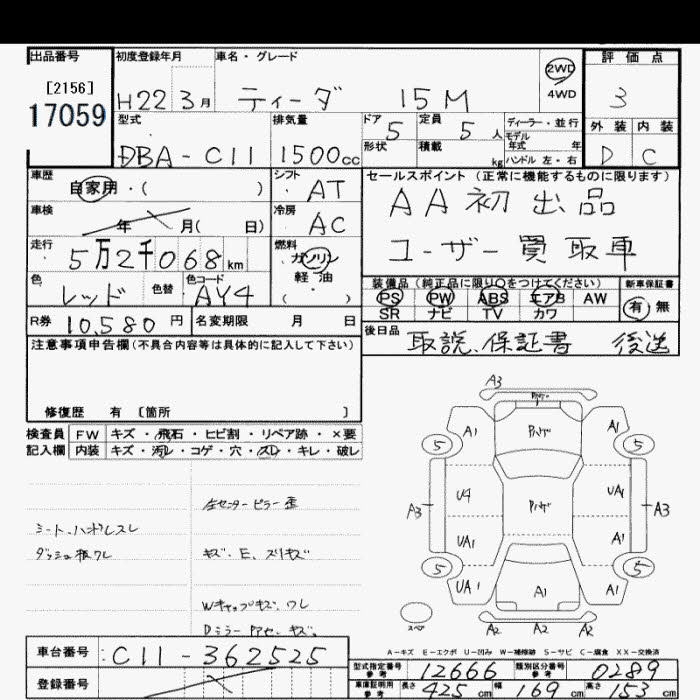 出品番号
[2156]
17059
初度登録年月
H22 3月
車名・グレード
ティーダ 15M
2WD
4WD
評価点
3
外装 内装
D C
型式
DBA-C11
排気量
1500cc
ドア
5
形状
定員
5人
積載
kg
ディーラー・並行
モデル
年式 年
ハンドル 左・右
車歴
自家用・( )
シフト
AT
車検
年 月( 日)
冷房
AC
走行
5万2千068km
燃料
ガソリン
軽・油
( )
色
レッド
色替
色コード
AY4
R券 10,580円
名変期限 月 日
セールスポイント (正常に機能するものに限ります)
AA初出品
ユーザー買取車
装備品 (純正品に限り○をつけてください)
PS PW ABS エアB AW
SR ナビ TV カワ
新車保証書
有 無
後日品
取説、保証書 後送
注意事項申告欄(不具合内容等は具体的に記入して下さい)
修復歴 有 〔箇所 〕
検査員 FW キズ・飛石・ヒビ割・リペア跡・×要
記入欄 内装 キズ・汚レ・コゲ・穴・スレ・キレ・破レ
左センターピラー歪
シート、ハンドルスレ
ダッシュ板ワレ
キズ、E、スリキズ
Wキャップキズ、ワレ
A3
A1 A1
5 5
U4 UA1
A3 A3
UA1 A1
5 5
UA1 A1 A1
スペア
A2 A2 A2
A-キズ E-エクボ U-凹み W-補修跡 S-サビ C-腐食 XX-交換済
車台番号
C11-362525
登録番号
型式指定番号
参考
12666
類別区分番号
参考
0289
車庫証明用
参考
長さ 425cm 幅 169cm 高さ 153cm